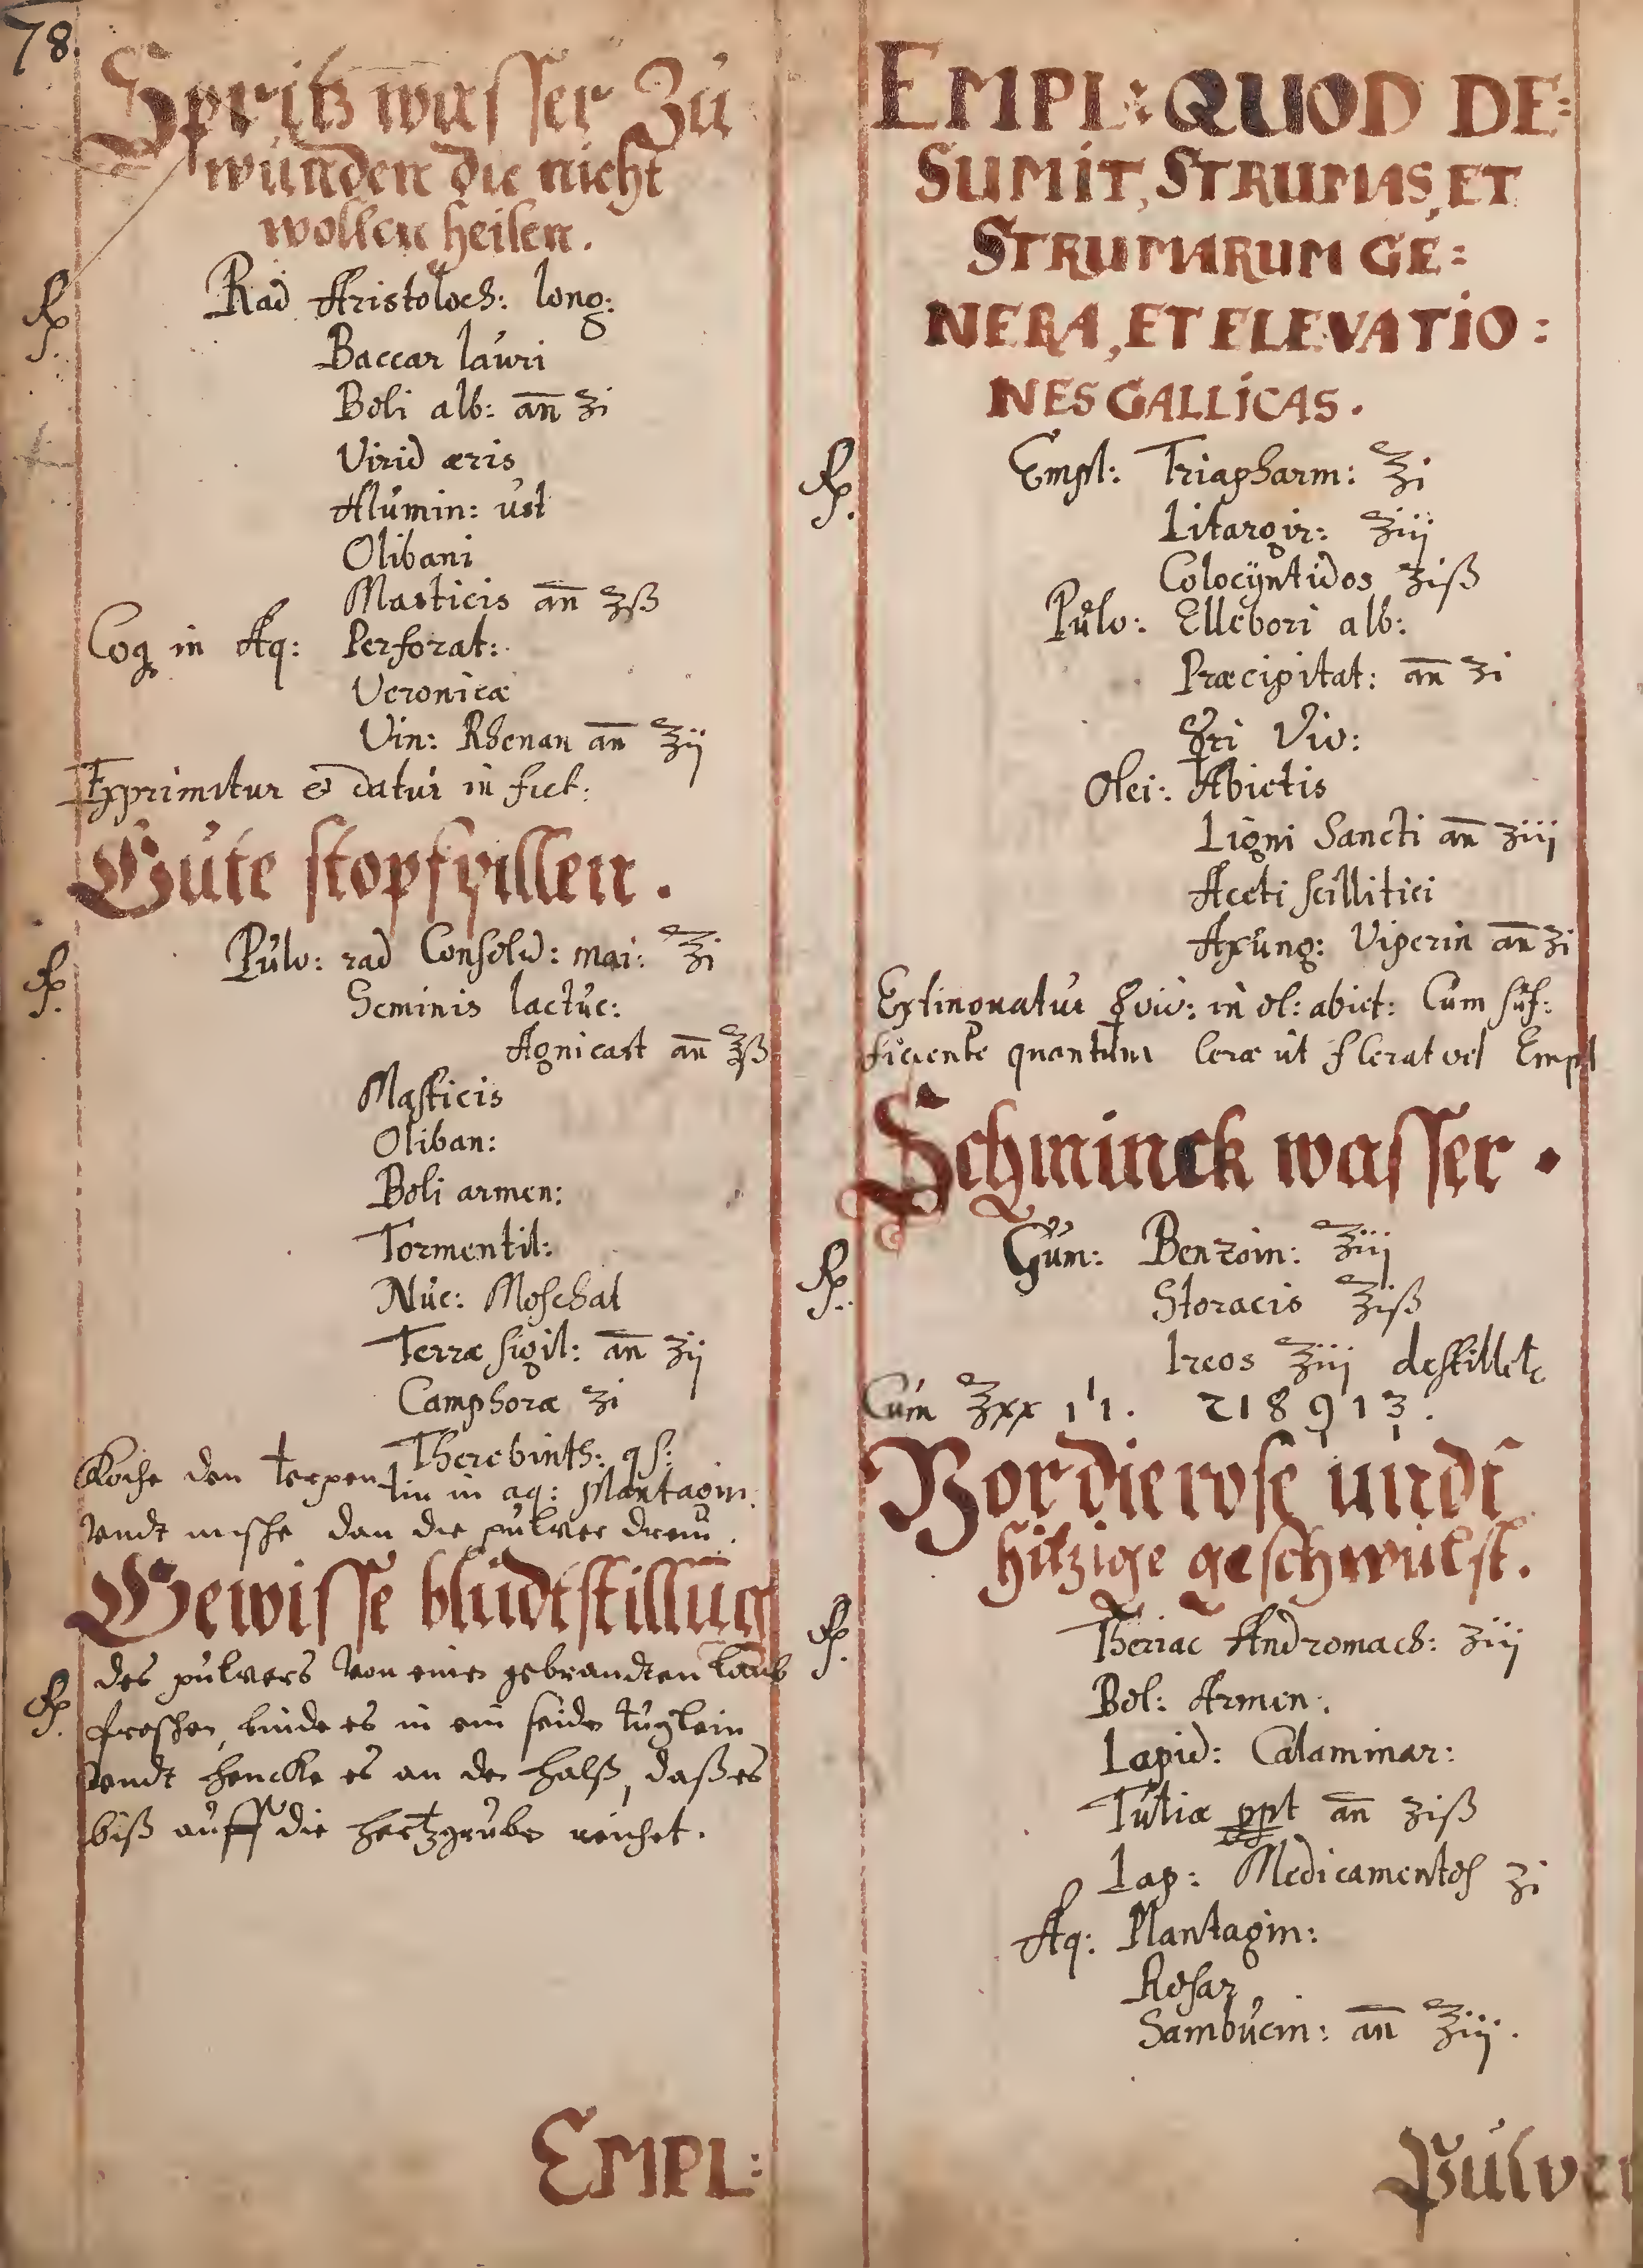 78.
Spritz wasser Zu
wunden die nicht
wollen heilen.
℞. Rad Aristoloch: long:
Baccar lauri
Boli alb: an̄ ʒi
Virid æris
Alumin: ust
Olibani
Masticis an̄ ʒß
Coq in Aq: Perforat:
Veronicæ
Vin: Rhenan an̄ ℥ij
Exprimitur & datur in fict:
Gute stopfpillen.
℞. Pulv: rad Consolid: mai: ℥i
Seminis lactuc:
Agnicast an̄ ℥ß
Masticis
Oliban:
Boli armen:
Tormentil:
Nuc: Moschat
Terræ sigil: an̄ ʒij
Camphoræ ʒi
Therebinth: qs:
Koche den terpentin in aq: Plantagin.
vndt mische dan die pulver drein.
Gewisse bludtstillung
℞. des pulvers von einē gebrandten laub
froschen, binde es in ein seiden tuglein
vndt hencke es an den halß, daß es
biß auff die hertzgruben reichet.
EMPL:
EMPL: QUOD DE:
SUMIT, STRUMAS, ET
STRUMARUM GE:
NERA, ET ELEVATIO:
NES GALLICAS.
℞. Empl: Triapharm: ℥i
Litargir: ℥iij
Colocÿntidos ʒiß
Pulv: Ellebori alb:
Præcipitat: an̄ ʒi
☿ri Viv:
Olei: Abietis
Ligni Sancti an̄ ʒiij
Aceti scillitici
Axung: Viperin an̄ ʒi
Extinguatur ☿ viv: in ol: abiet: Cum suf:
ficiente quantum Ceræ ut f Cerat vel Empl
Schminck wasser.
℞. Gum: Benzoin: ℥iij
Storacis ℥iß
Ireos ℥iij destillete
Cum ℥xx 11. 218913.
Vor die rose undt
hitzige geschwulst.
℞. Theriac Andromach: ʒiij
Bol: Armen:
Lapid: Calaminar:
Tutiæ ppt an̄ ʒiß
Lap: Medicamentos ʒi
Aq: Plantagin:
Rosar
Sambucin: an̄ ℥iij.
Pulver